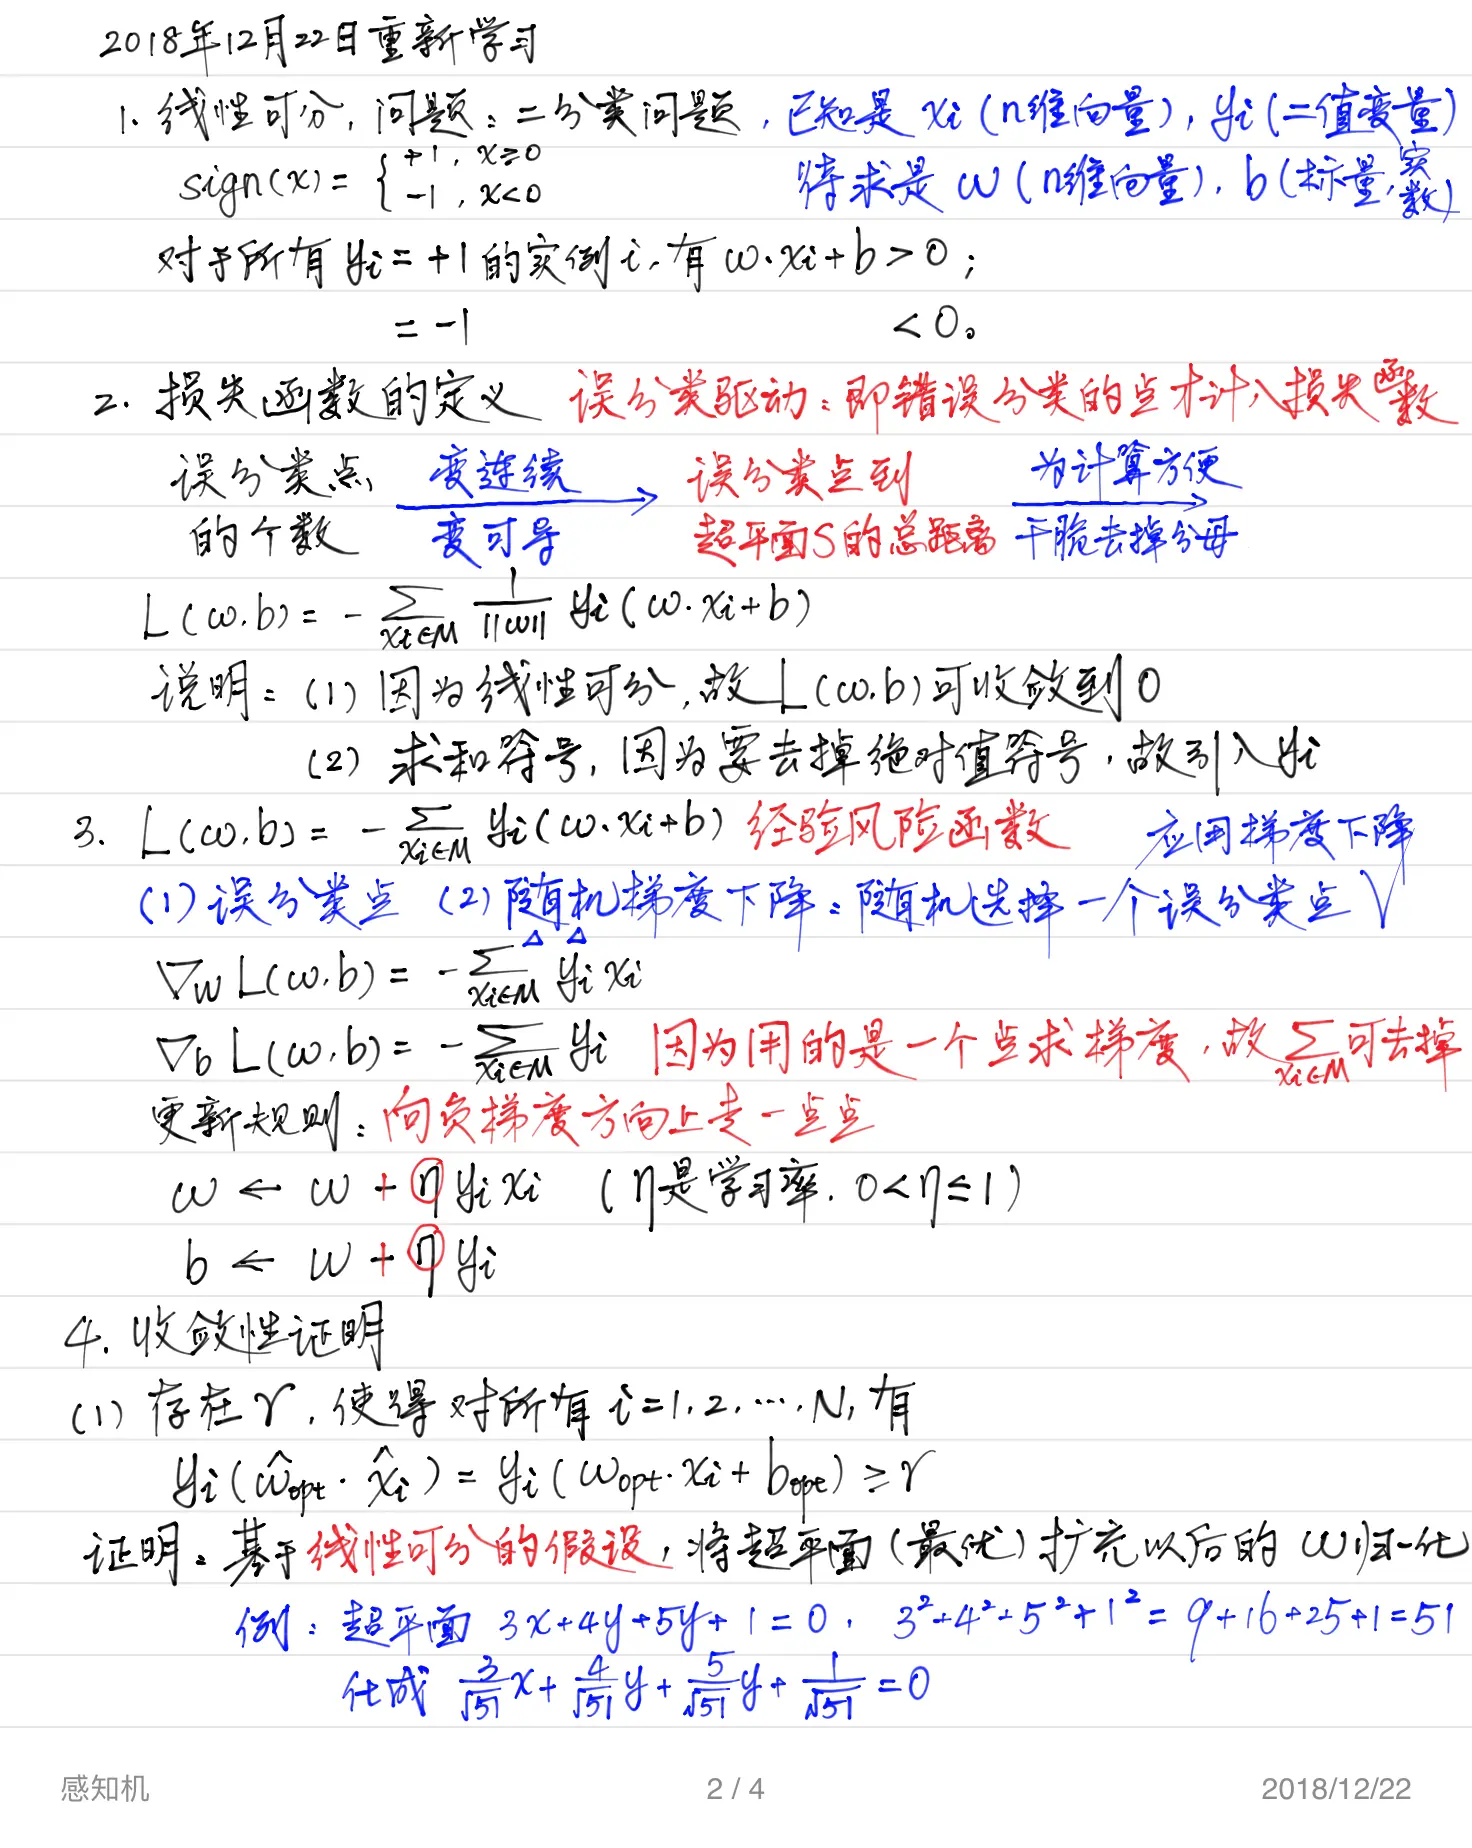 2018年12月22日重新学习
1. 线性可分，问题：二分类问题，已知是 xi (n维向量)，yi (二值变量)
sign(x) = { +1, x≥0
-1, x<0
待求是 w (n维向量)，b (标量，实数)
对于所有 yi = +1 的实例 i，有 w·xi + b > 0；
= -1 < 0。
2. 损失函数的定义 误分类驱动：即错误分类的点才计入损失函数
误分类点 变连续 误分类点到 为计算方便
的个数 变可导 超平面S的总距离 干脆去掉分母
L(w,b) = -∑xi∈M 1/||w|| yi(w·xi+b)
说明：(1) 因为线性可分，故 L(w,b) 可收敛到 0
(2) 求和符号，因为要去掉绝对值符号，故引入 yi
3. L(w,b) = -∑xi∈M yi(w·xi+b) 经验风险函数 应用梯度下降
(1) 误分类点 (2) 随机梯度下降：随机选择一个误分类点 √
∇w L(w,b) = -∑xi∈M yi xi
∇b L(w,b) = -∑xi∈M yi 因为用的是一个点求梯度，故 ∑xi∈M 可去掉
更新规则：向负梯度方向上走一点点
w ← w + η yi xi (η是学习率，0<η≤1)
b ← w + η yi
4. 收敛性证明
(1) 存在 γ，使得对所有 i=1,2,…,N，有
yi(ŵopt · x̂i) = yi(wopt·xi + bopt) ≥ γ
证明：基于线性可分的假设，将超平面(最优)扩充以后的 w 归一化
例：超平面 3x+4y+5y+1=0，3²+4²+5²+1²=9+16+25+1=51
化成 3/√51 x + 4/√51 y + 5/√51 y + 1/√51 = 0
感知机 2 / 4 2018/12/22